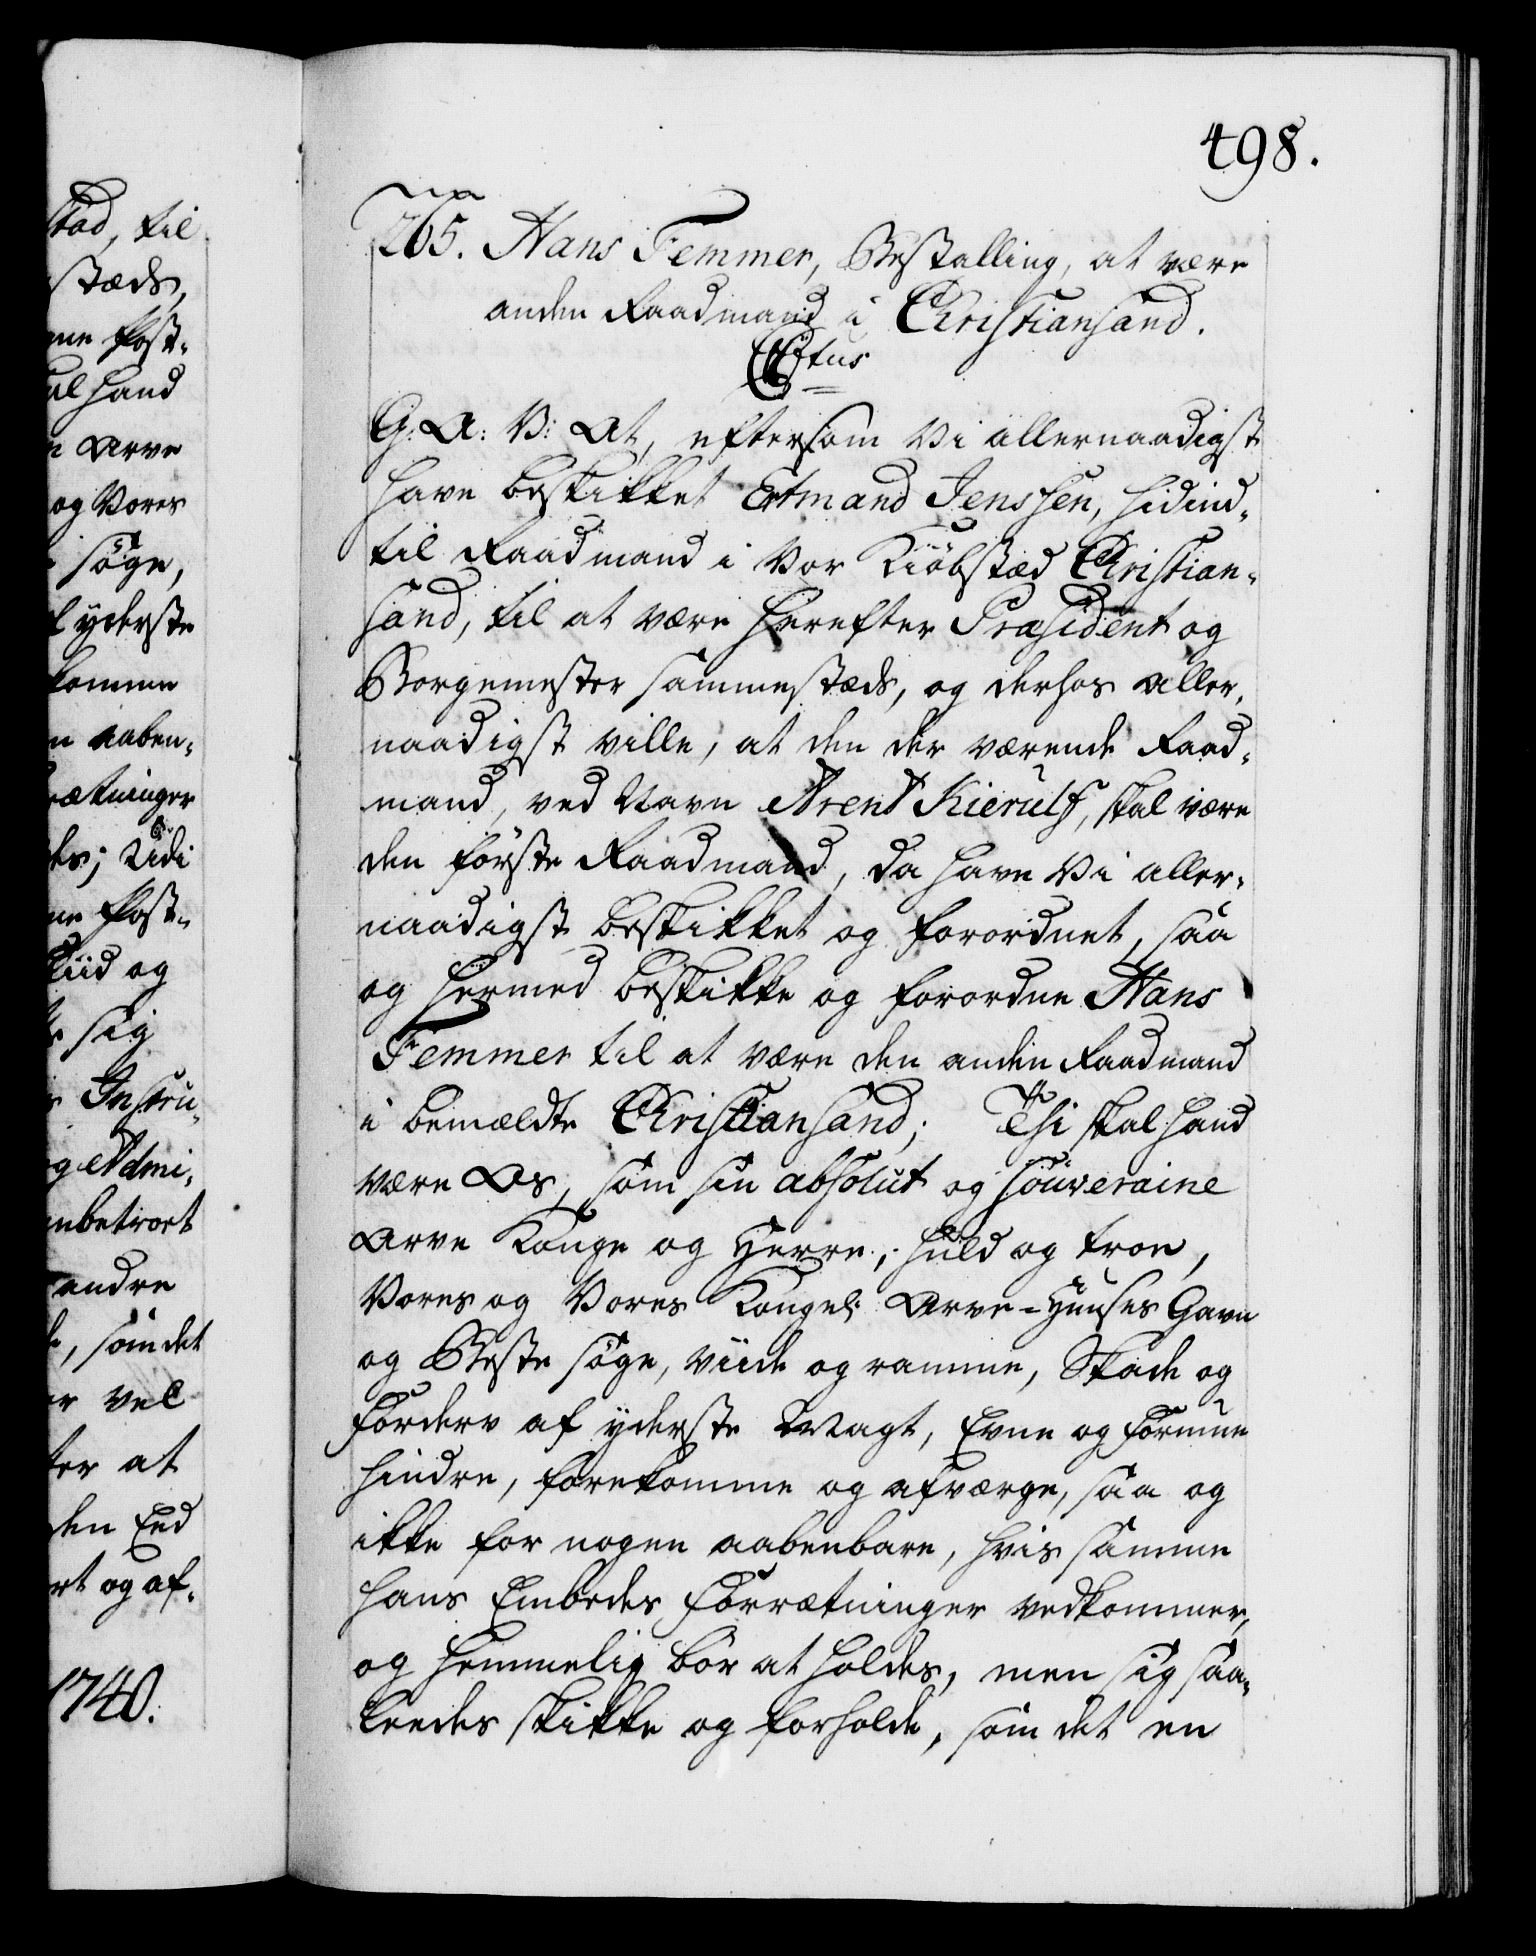 stæd, til
stæds,
ne Post-
al hand
n Arve
og Vores
søge,
f yderste
komme
n aaben-
rætninger
des; Udi
ne Post-
Tiid og
sig
Instru-
g Admi-
nbetroet
andre
som det
er vel
ter at
den Eed
rt og af-
1740.
498.
265. Hans Femmer, Bestalling, at være
anden Raadmand i Christiansand.
C 6tus
G: A: V: At, eftersom Vi allernaadigst
have beskikket Ertmand Jenssen, hidind-
til Raadmand i Vor Kiöbstæd Christian-
sand, til at være herefter Præsident og
Borgemester sammestæds, og derhos aller-
naadigst ville, at den der værende Raad-
mand, ved Navn Arent Kierulf, skal være
den förste Raadmand, da have Vi aller-
naadigst beskikket og forordnet, saa
og hermed beskikke og forordne Hans
Femmer til at være den anden Raadmand
i bemældte Christiansand; Thi skal hand
være Os, som sin absolut og souveraine
Arve Konge og Herre, huld og troe,
Vores og Vores Kongel: Arve-Huuses Gavn
og Beste söge, viide og ramme, Skade og
Forderv af yderste Magt, Evne og Formue
hindre, forekomme og afværge, saa og
ikke for nogen aabenbare, hvis samme
hans Embedes Forrætninger vedkommer,
og hemmelig bör at holdes, men sig saa-
ledes skikke og forholde, som det en